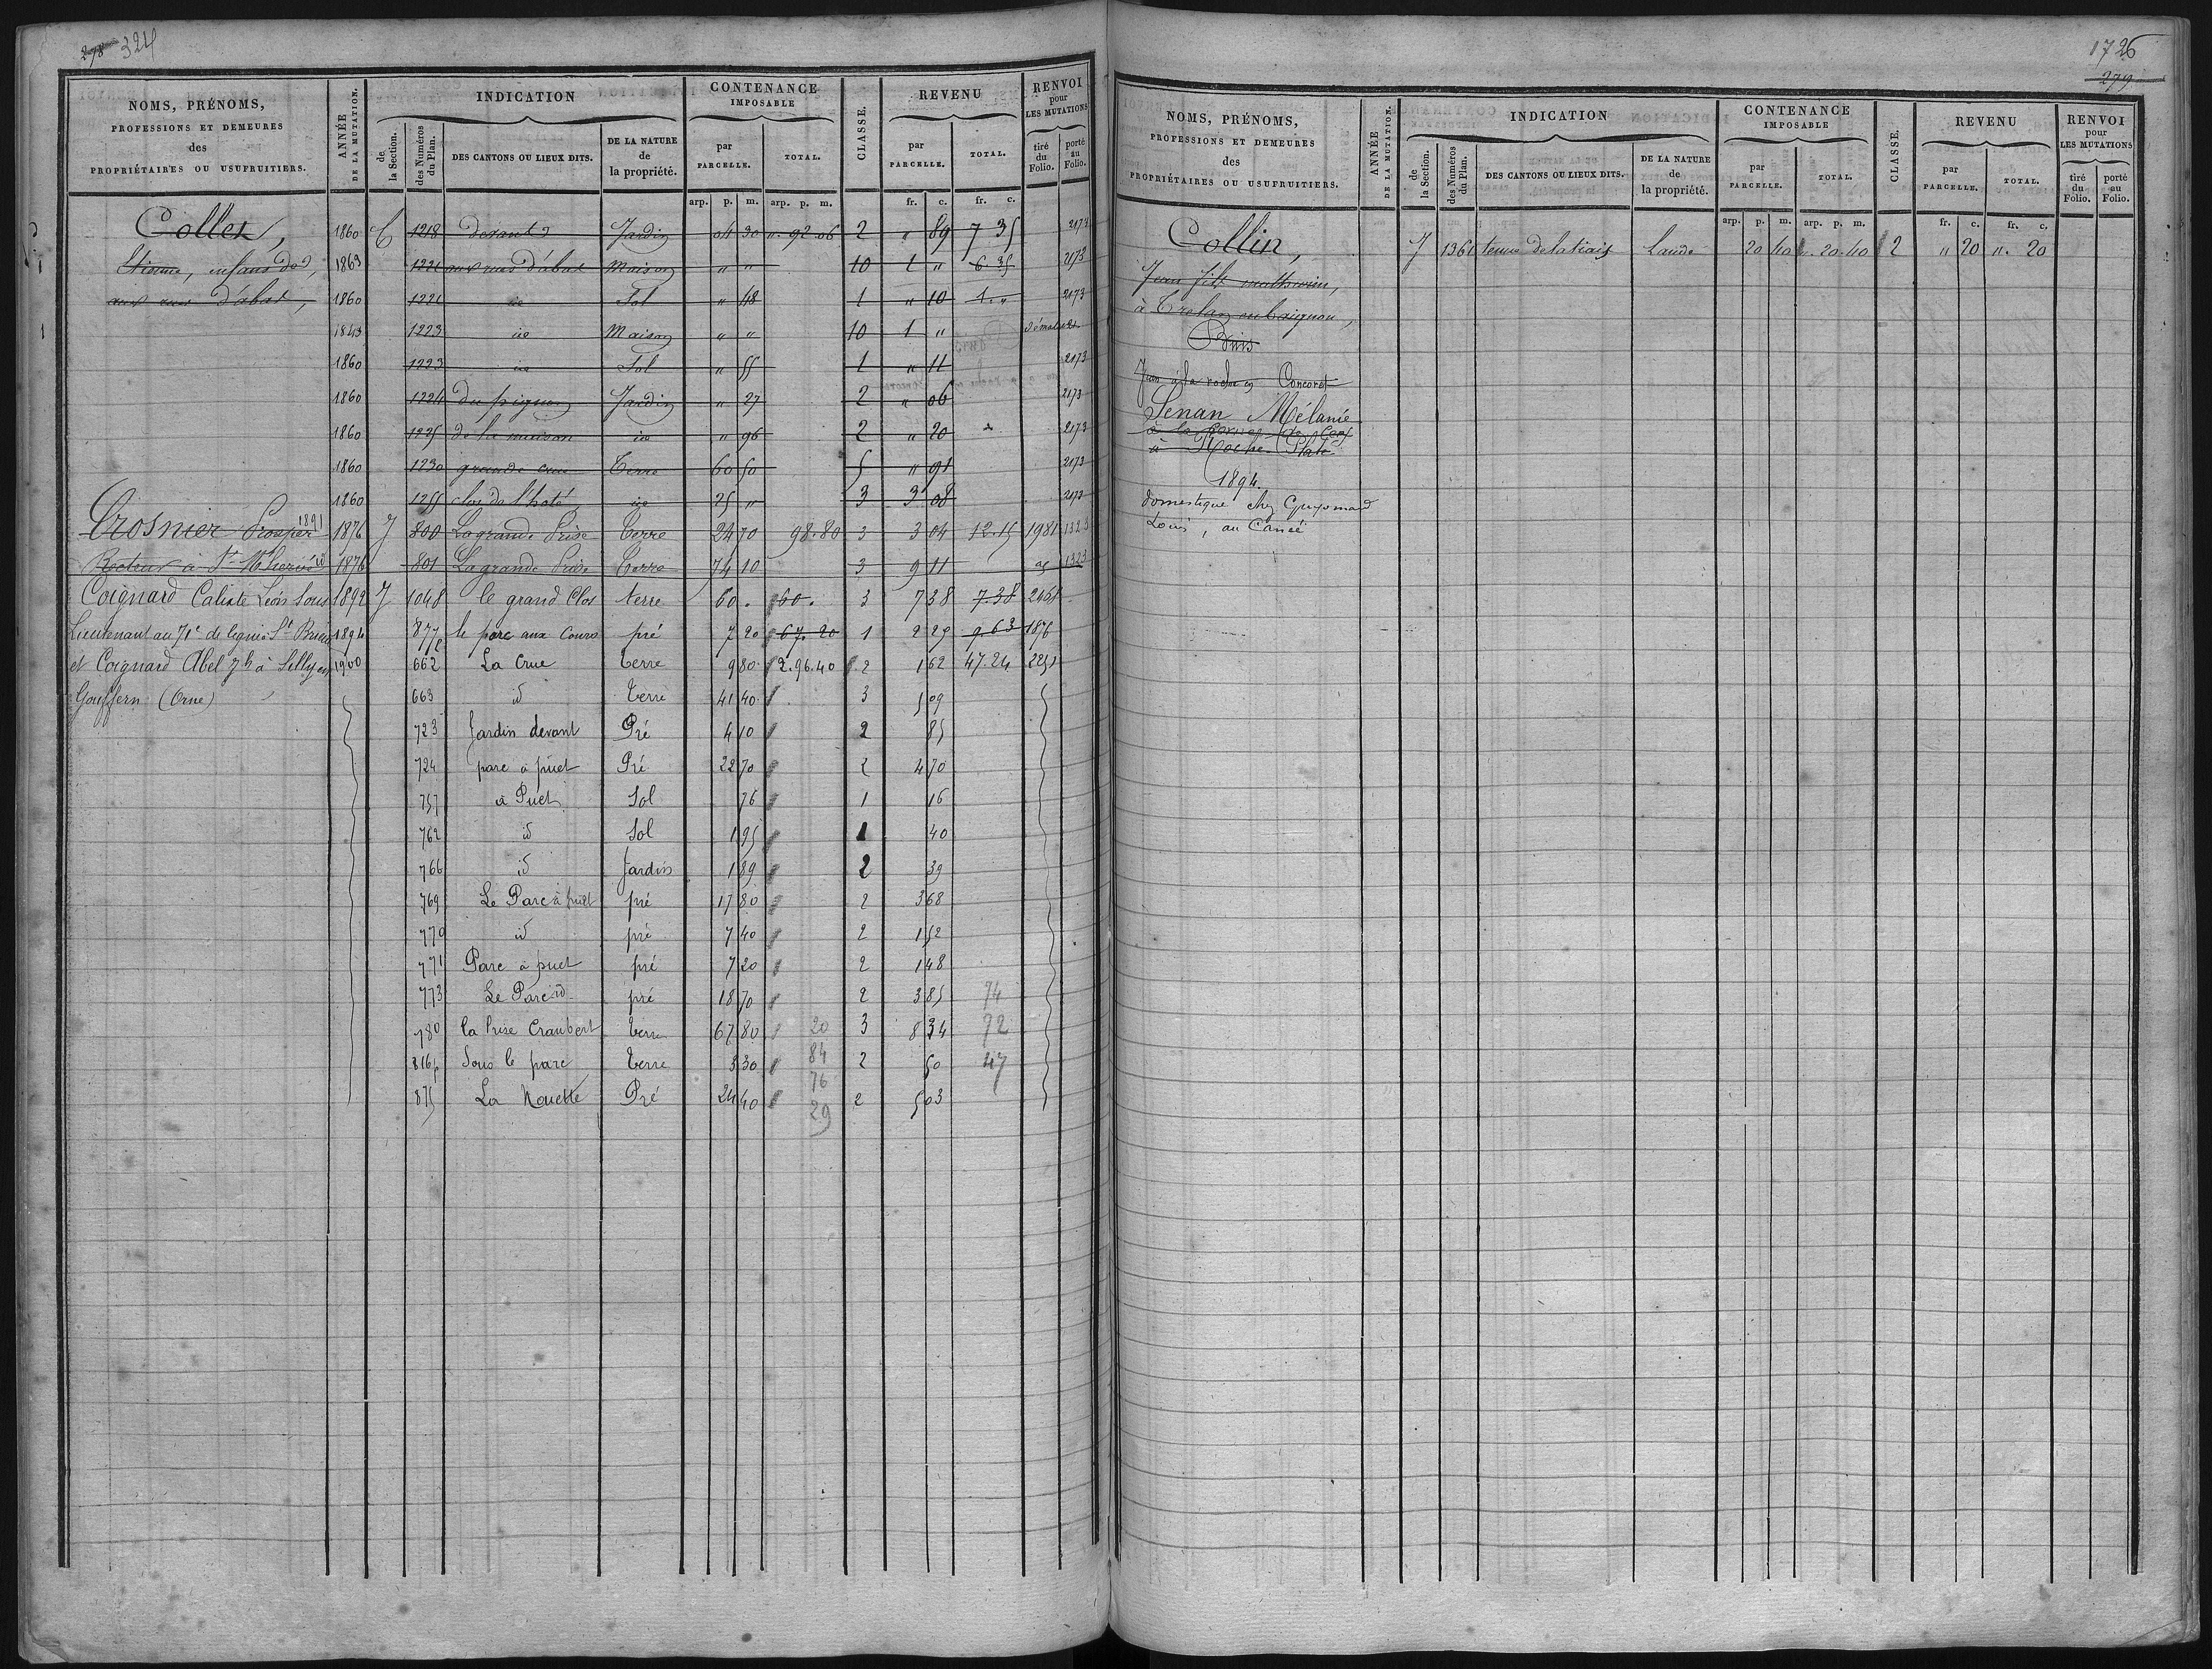 278 324
NOMS, PRÉNOMS, PROFESSIONS ET DEMEURES des PROPRIÉTAIRES OU USUFRUITIERS. ANNÉE DE LA MUTATION. INDICATION de la Section. des Numéros du Plan. DES CANTONS OU LIEUX DITS. DE LA NATURE de la propriété. CONTENANCE IMPOSABLE par PARCELLE. TOTAL. CLASSE. REVENU par PARCELLE. TOTAL. RENVOI pour LES MUTATIONS tiré du Folio. porté au Folio.
arp. p. m. arp. p. m. fr. c. fr. c.
Collet, 1860 C 1218 devant Jardin 04 30 " 92 06 2 " 89 7 35 2173
Etienne, enfans de, 1863 1221 aux rues d'abas Maison " " 10 1 " 6.35 2173
aux rues d'abas, 1860 1221 id Sol " 48 1 " 10 1. " 2173
1843 1223 id Maison " " 10 1 "
1860 1223 id Sol " 55 1 " 11 2173
1860 1224 du pignon Jardin " 27 2 " 06 2173
1860 1225 de la maison id " 96 2 " 20 2173
1860 1230 grande crue Terre 60 50 5 " 91 2173
1860 1255 clos de l'hoté id 25 " 3 3 08 2173
Crosnier Prosper 1891 1876 J 800 La grande Prise Terre 24 70 98.80 3 3 04 12.15 1981 1323
Recteur à St 1876 801 La grande Prise Terre 74 10 3 9 11 1323
Coignard Calixte Léon Louis 1892 J 1048 le grand Clos terre 60 . 60 . 3 7 38 7.38 2461
Lieutenant au 71e de ligne à St Brieuc 1894 877p le parc aux Cours pré 7 20 67.20 1 2 25 9.63 1876
et Coignard Abel Jh à Silly en 1900 662 La Crue terre 9 80 2.96.40 2 1 62 47.24 2251
Gouffern (Orne) 663 id terre 41 40 3 5 09
723 Jardin devant Pré 4 10 2 85
724 parc à puet Pré 22 70 2 4 70
757 à Puet Sol 76 1 16
762 id Sol 1 95 1 40
766 id Jardin 1 89 2 39
769 Le Parc à puet pré 17 80 2 3 68
770 id pré 7 40 2 1 52
771 Parc à puet pré 7 20 2 1 48
773 Le Parc id pré 18 70 2 3 85 74
780 la Prise Craubert terre 67 80 20 3 8 34 72
816p Sous le parc terre 3 30 84 2 50 47
76
875 La Nouette Pré 24 40 29 2 5 03
1726
279
NOMS, PRÉNOMS, PROFESSIONS ET DEMEURES des PROPRIÉTAIRES OU USUFRUITIERS. ANNÉE DE LA MUTATION. INDICATION de la Section. des Numéros du Plan. DES CANTONS OU LIEUX DITS. DE LA NATURE de la propriété. CONTENANCE IMPOSABLE par PARCELLE. TOTAL. CLASSE. REVENU par PARCELLE. TOTAL. RENVOI pour LES MUTATIONS tiré du Folio. porté au Folio.
arp. p. m. arp. p. m. fr. c. fr. c.
Collin, J 1361 Lande 20 40 ". 20.40 2 " 20 ". 20
Jean fils mathurin,
à
Puis
Jean à la roche en Concoret
Senan Mélanie
à la
à Roche Plate
1894.
domestique chez Guyomard
Louis, au Cancé